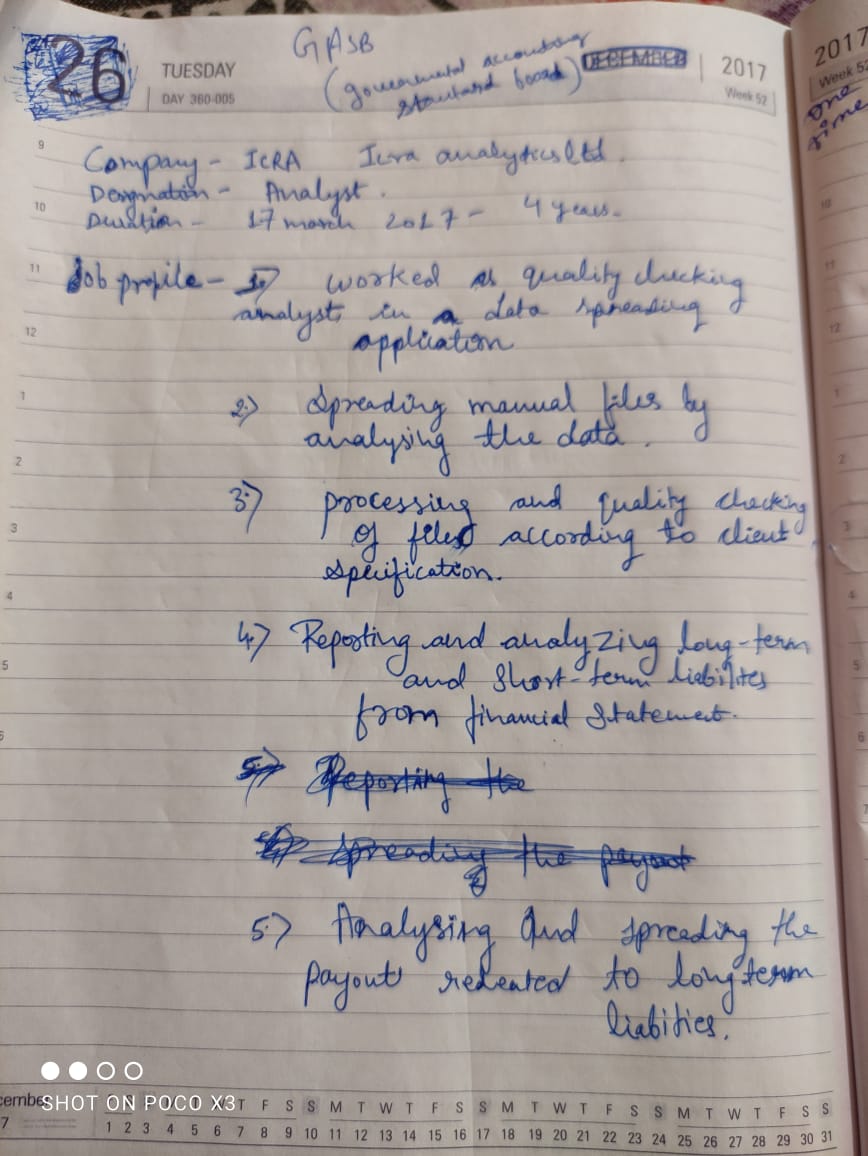 GASB
(governmental accounting
standard board)
26
TUESDAY
DAY 360-005
DECEMBER
2017
Week 52
2017
Week 52
one
time
9
Company - ICRA Icra analytics ltd.
Designation - Analyst.
10
Duration - 17 march 2017 - 4 years.
11
Job profile - 1.) worked as quality checking
analyst in a data spreading
12
application
1
2.) Spreading manual files by
analysing the data.
2
3.) processing and quality checking
3
of files according to client
specification.
4
4.) Reporting and analyzing long-term
5
and short-term liabilites
from financial statement.
6
5.) Reporting the
spreading the payout
5.) Analysing and spreading the
payout releated to long term
liabities.
SHOT ON POCO X3
T F S S M T W T F S S M T W T F S S M T W T F S S
1 2 3 4 5 6 7 8 9 10 11 12 13 14 15 16 17 18 19 20 21 22 23 24 25 26 27 28 29 30 31